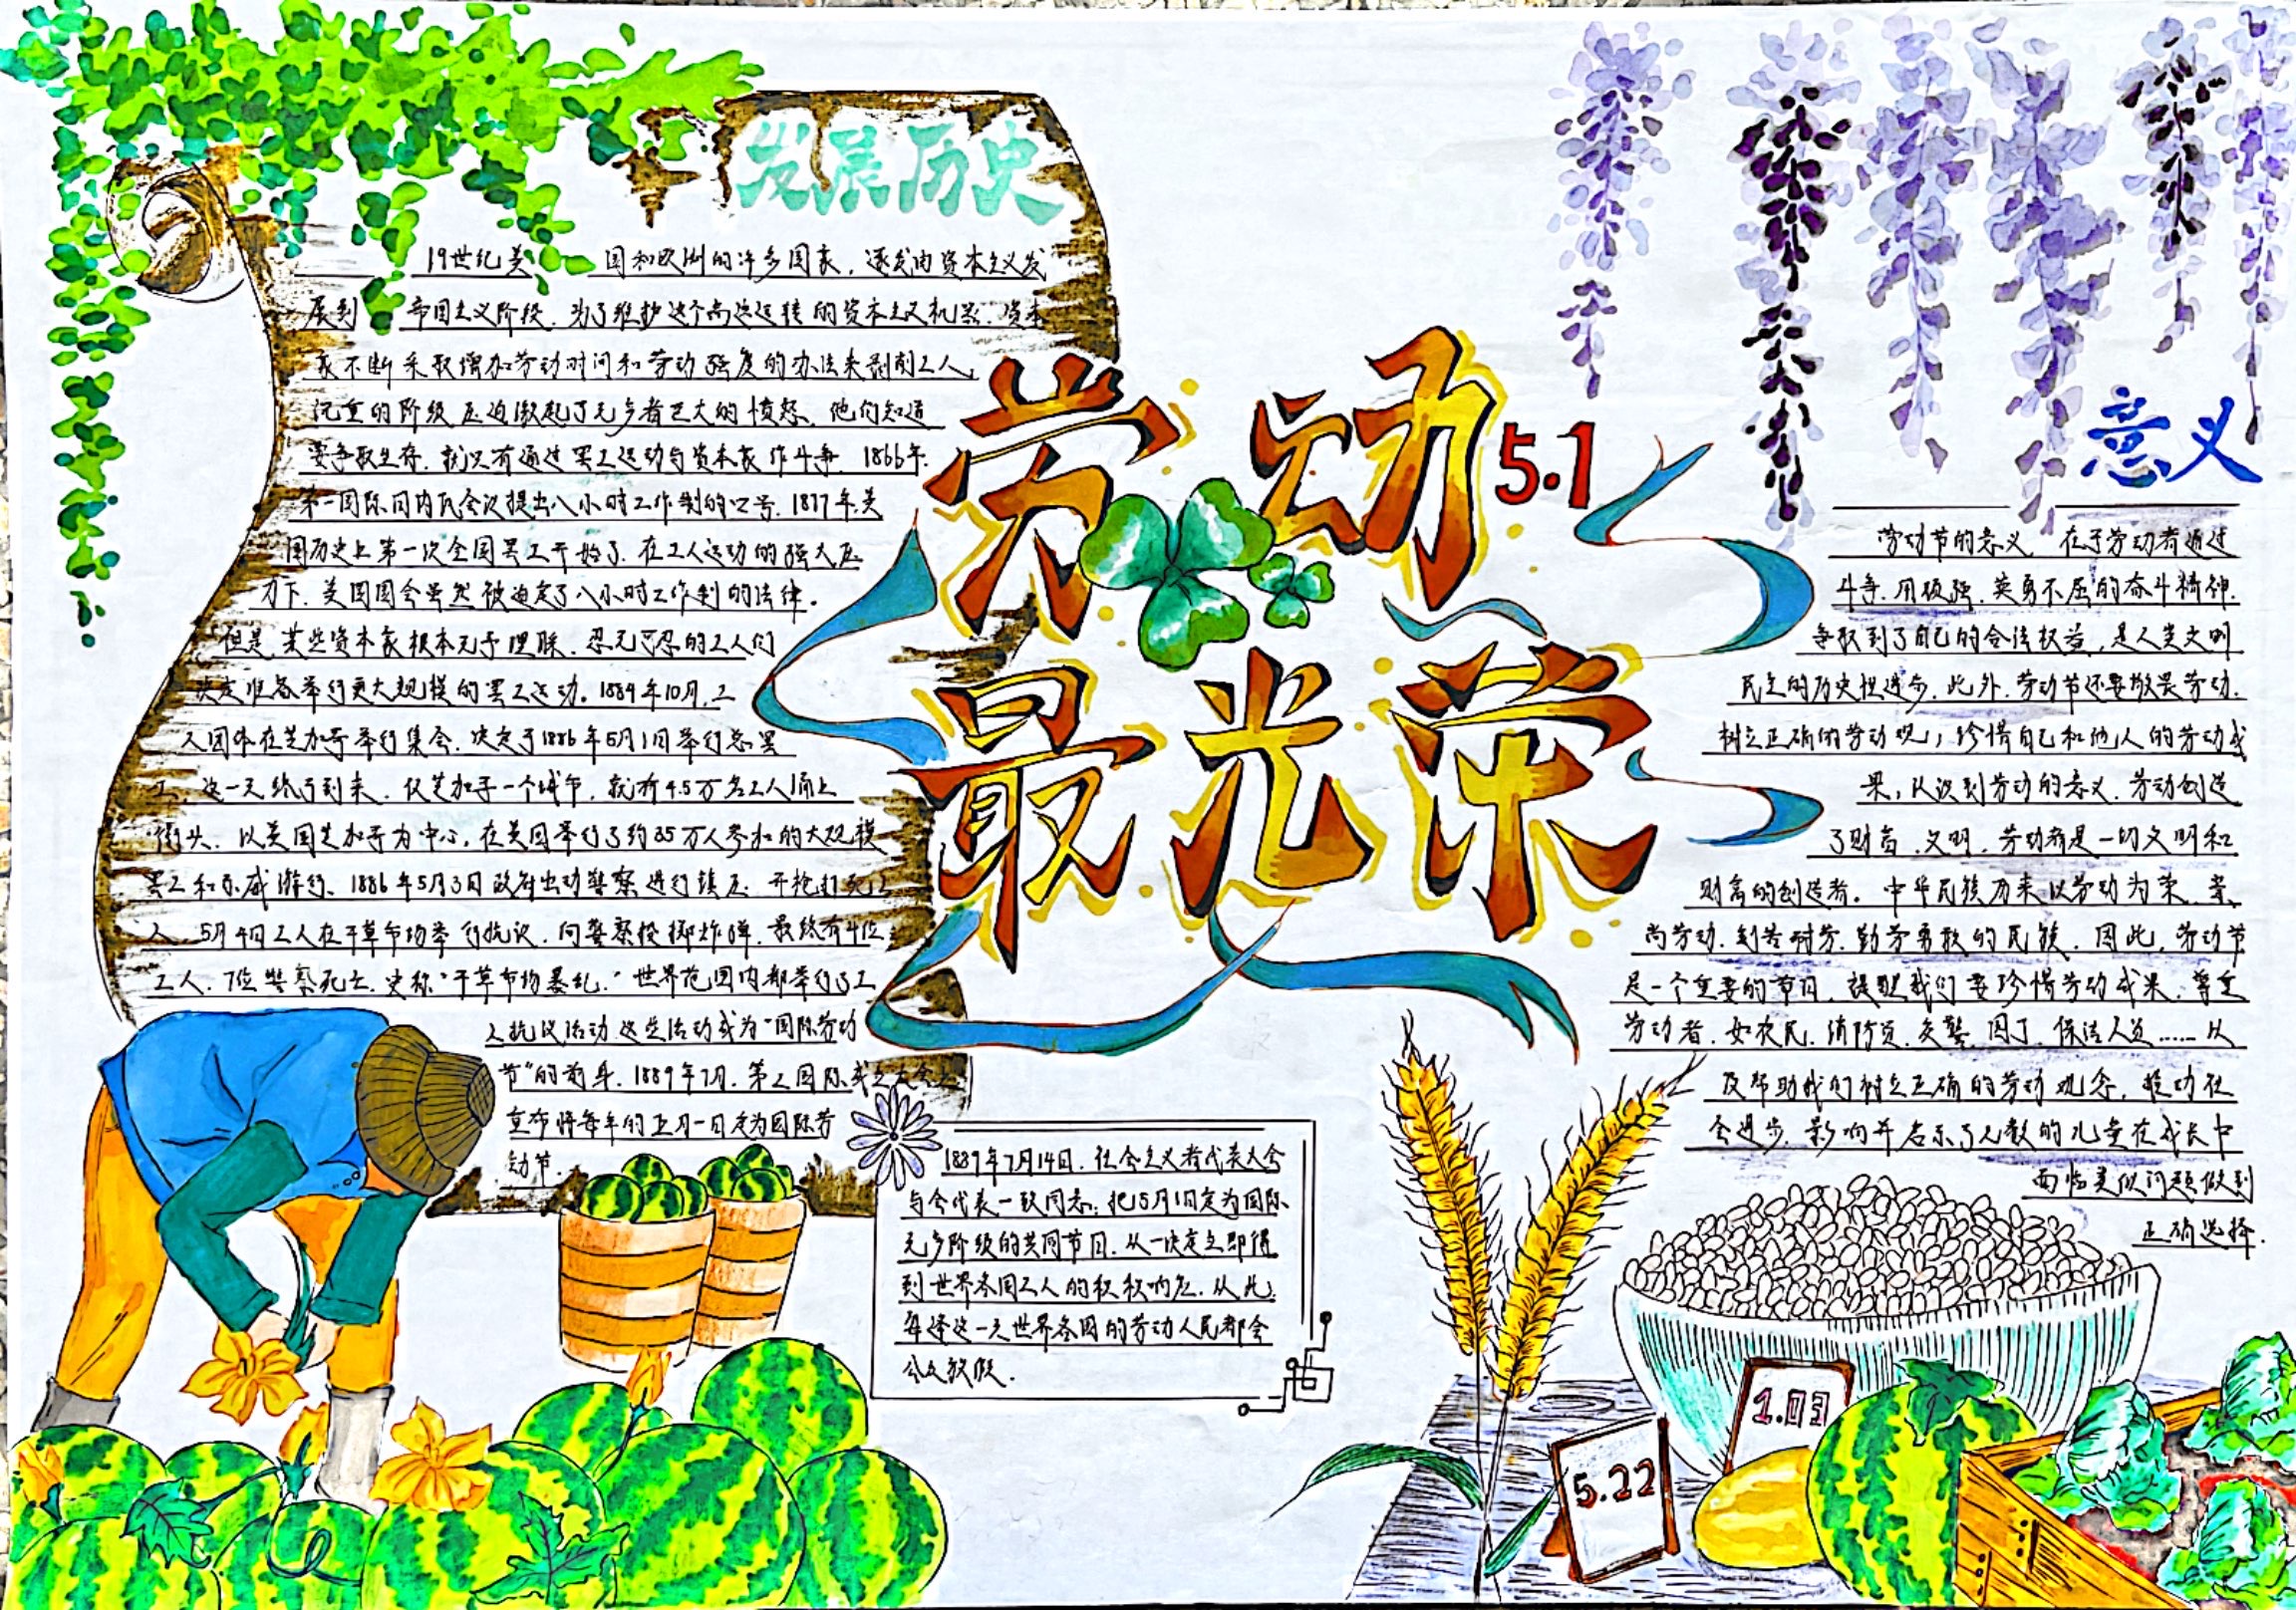 发展历史
19世纪美国和欧洲的许多国家，逐步由资本主义发
展到帝国主义阶段，为了维护这个高速运转的资本主义机器，资本
家不断采取增加劳动时间和劳动强度的办法来剥削工人。
沉重的阶级压迫激起了无产者巨大的愤怒，他们知道
要争取生存，就只有通过罢工运动与资本家作斗争，1866年，
第一国际日内瓦会议提出八小时工作制的口号，1877年，美
国历史上第一次全国罢工开始了，在工人运动的强大压
力下，美国国会虽然被迫定了八小时工作制的法律。
但是，某些资本家根本无予理睬，忍无可忍的工人们
决定准备举行更大规模的罢工运动。1884年10月，工
人团体在芝加哥举行集会，决定于1886年5月1日举行总罢
工，这一天终于到来，仅芝加哥一个城市，就有4.5万名工人涌上
街头，以美国芝加哥为中心，在美国举行了约35万人参加的大规模
罢工和示威游行，1886年5月3日政府出动警察进行镇压，开枪打死工
人，5月4日工人在干草市场举行抗议，向警察投掷炸弹，最终有4位
工人，7位警察死亡，史称“干草市场暴乱。”世界范围内都举行了工
人抗议活动，这些活动成为“国际劳动
节”的前身，1889年7月，第二国际成立大会上
宣布将每年的五月一日定为国际劳
动节。
劳动5.1
最光荣
1889年7月14日，社会主义者代表大会
与会代表一致同意：把5月1日定为国际
无产阶级的共同节日，从一决定立即得
到世界各国工人的积极响应，从此，
每逢这一天世界各国的劳动人民都会
公众放假．
意义
劳动节的意义，在于劳动者通过
斗争，用顽强，英勇不屈的奋斗精神，
争取到了自己的合法权益，是人类文明
民主的历史性进步，此外，劳动节还要敬畏劳动，
树立正确的劳动观；珍惜自己和他人的劳动成
果；认识到劳动的意义，劳动创造
了财富，文明，劳动者是一切文明和
财富的创造者。中华民族历来以劳动为荣，崇
尚劳动，刻苦耐劳，勤劳勇敢的民族，因此，劳动节
是一个重要的节日，提醒我们要珍惜劳动成果，尊重
劳动者，如农民，消防员，交警，园丁，保洁人员……从
及帮助我们树立正确的劳动观念，推动社
会进步，影响并启示了无数的儿童在成长中
面临类似问题做到
正确选择．
1.03
5.22